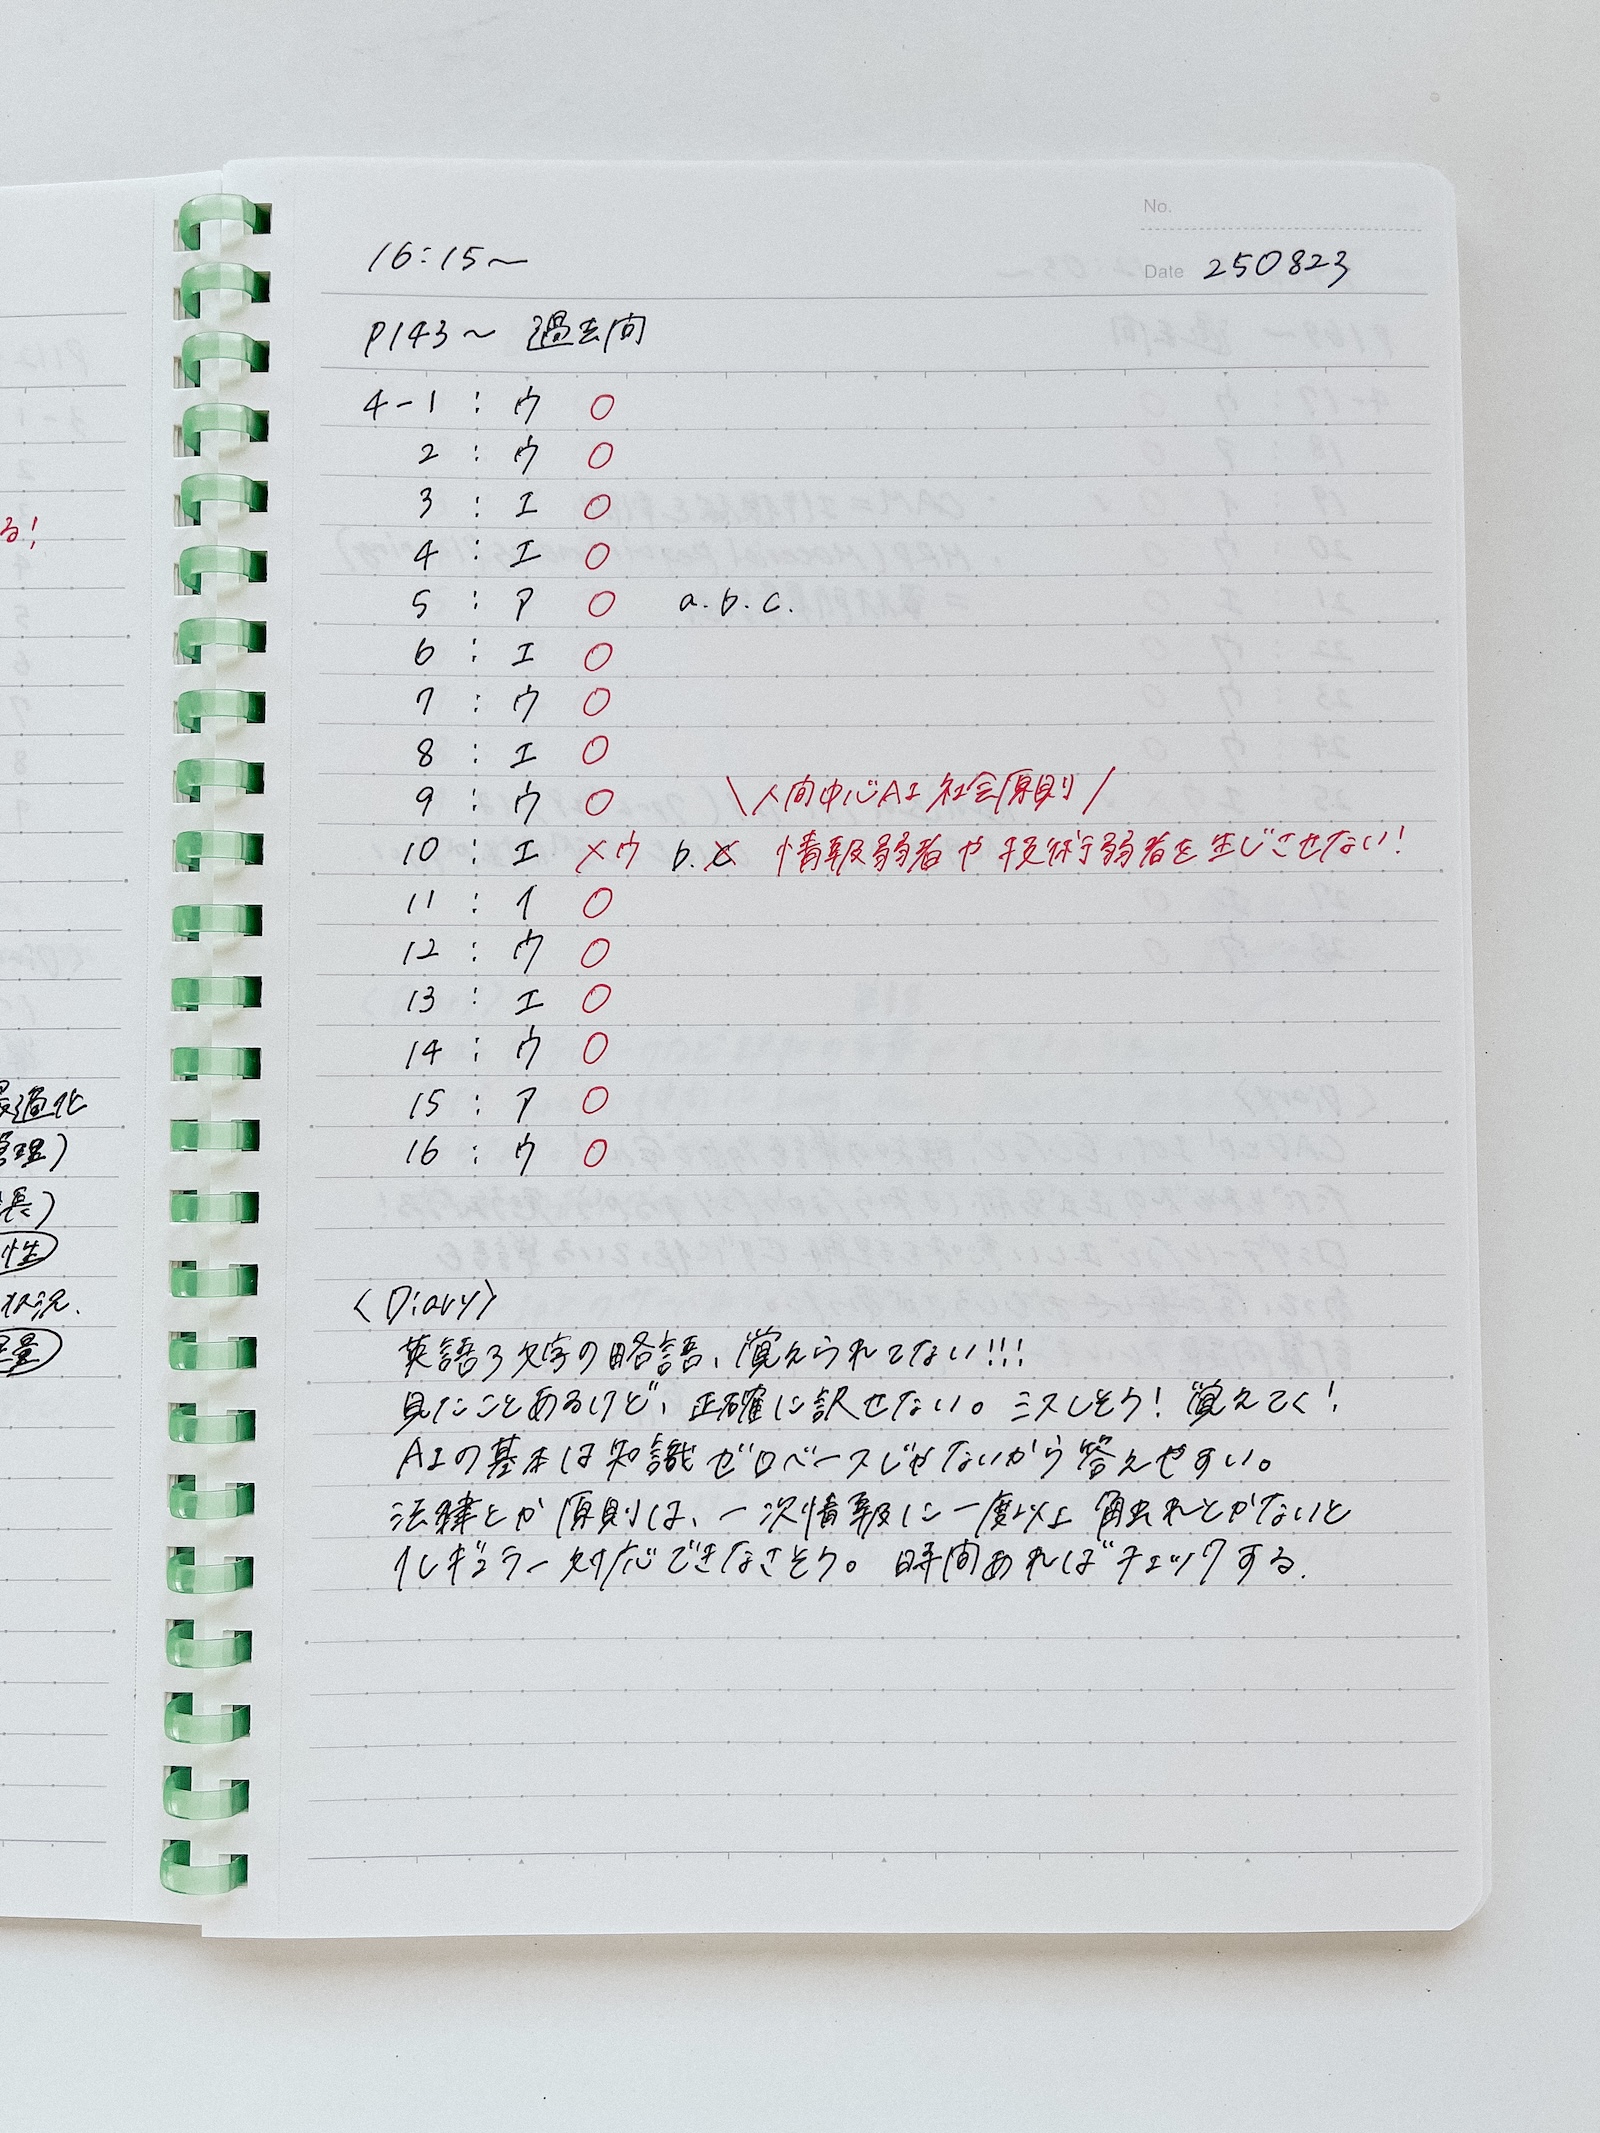 る!
最適化
管理)
長)
性
状況.
量
No.
16:15〜
Date 250823
P143〜 過去問
4-1 : ウ ○
2 : ウ ○
3 : エ ○
4 : エ ○
5 : ア ○ a.b.c.
6 : エ ○
7 : ウ ○
8 : エ ○
9 : ウ ○ \人間中心AI社会原則/
10 : エ ×ウ b.c 情報弱者や技術弱者を生じさせない!
11 : イ ○
12 : ウ ○
13 : エ ○
14 : ウ ○
15 : ア ○
16 : ウ ○
〈Diary〉
英語3文字の略語、覚えられてない!!!
見たことあるけど、正確に訳せない。ミスしそう!覚えてく!
AIの基本は知識ゼロベースじゃないから答えやすい。
法律とか原則は、一次情報に一度以上触れとかないと
イレギュラー対応できなさそう。時間あればチェックする.